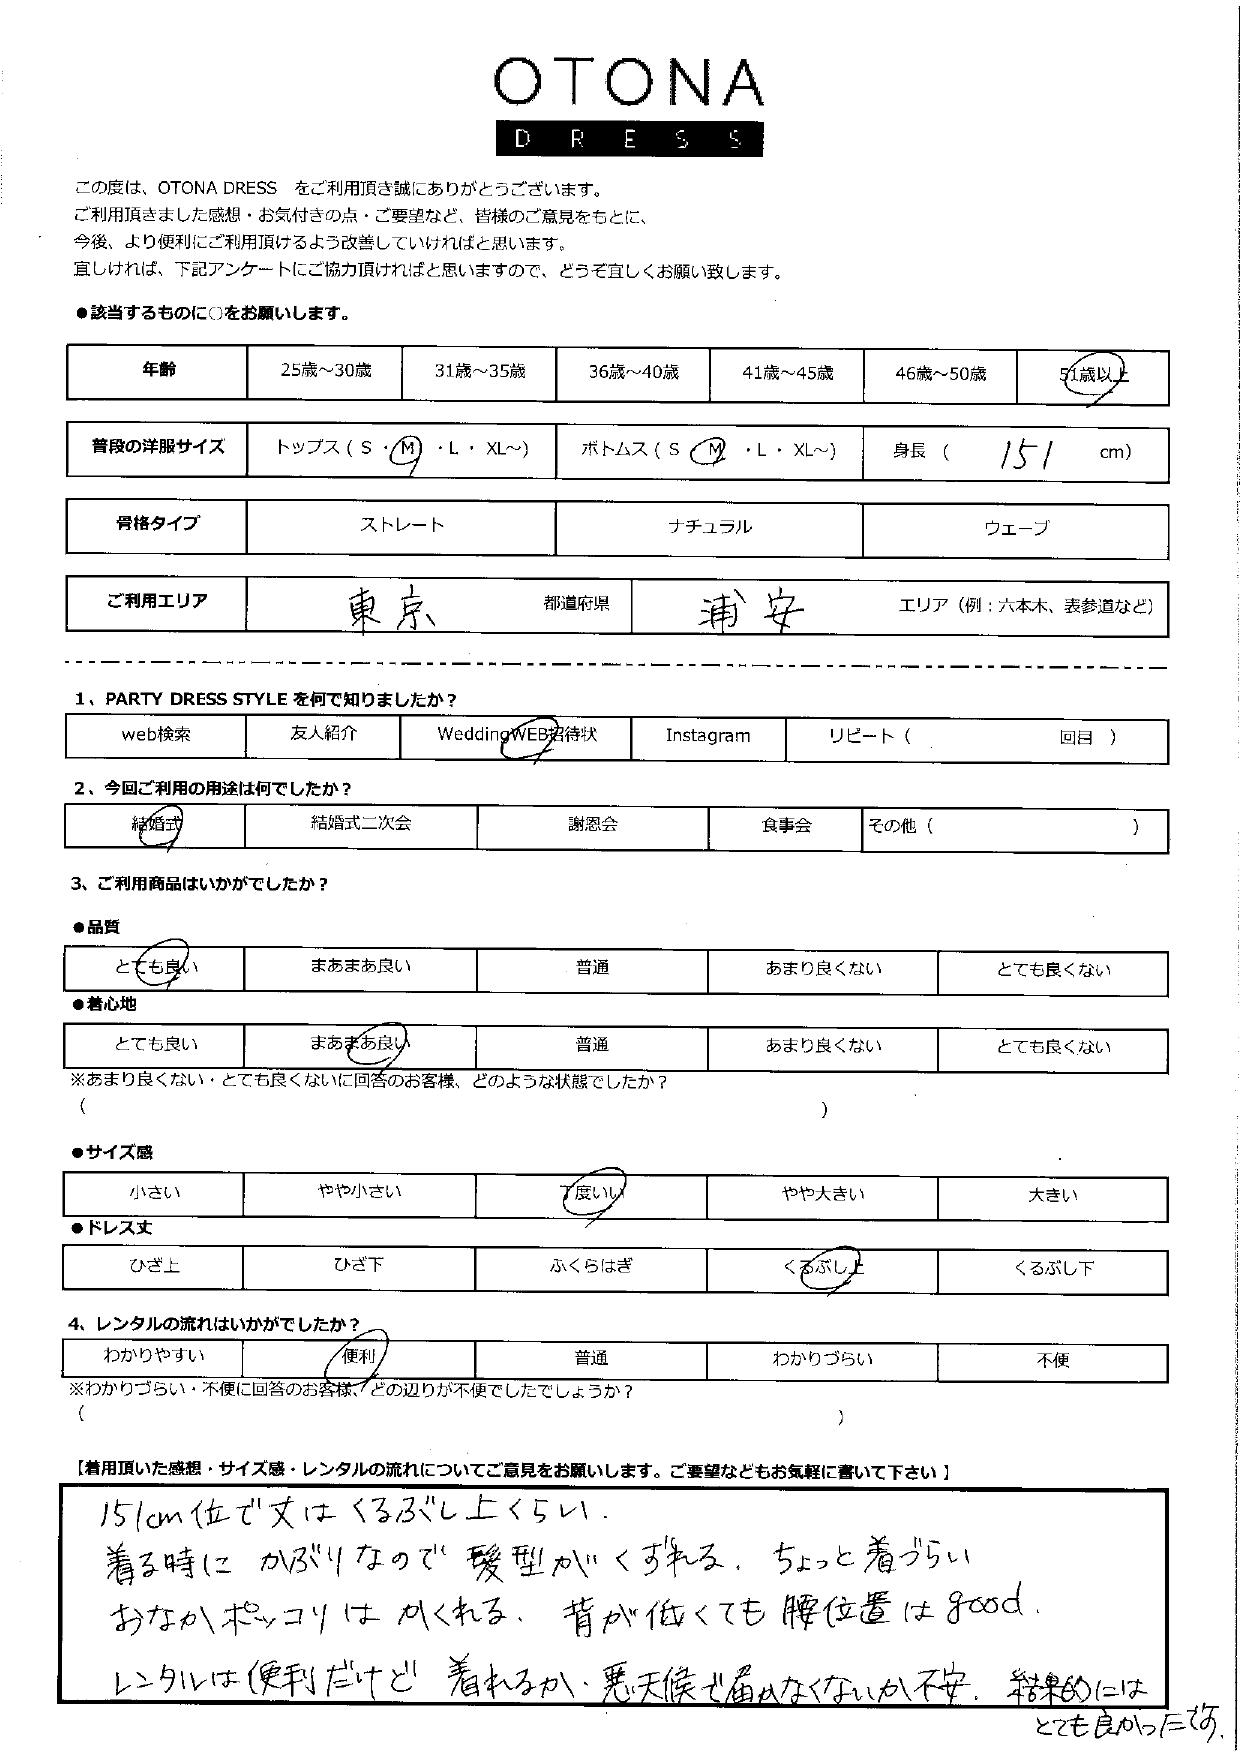 OTONA
DRESS
この度は、OTONA DRESS をご利用頂き誠にありがとうございます。
ご利用頂きました感想・お気付きの点・ご要望など、皆様のご意見をもとに、
今後、より便利にご利用頂けるよう改善していければと思います。
宜しければ、下記アンケートにご協力頂ければと思いますので、どうぞ宜しくお願い致します。
●該当するものに○をお願いします。
年齢 25歳～30歳 31歳～35歳 36歳～40歳 41歳～45歳 46歳～50歳 51歳以上
普段の洋服サイズ トップス ( S ・ M ・ L ・ XL～) ボトムス ( S M ・ L ・ XL～) 身長 ( 151 cm)
骨格タイプ ストレート ナチュラル ウェーブ
ご利用エリア 東京 都道府県 浦安 エリア（例：六本木、表参道など）
1、PARTY DRESS STYLE を何で知りましたか？
web検索 友人紹介 WeddingWEB招待状 Instagram リピート（ 回目 ）
2、今回ご利用の用途は何でしたか？
結婚式 結婚式二次会 謝恩会 食事会 その他（ ）
3、ご利用商品はいかがでしたか？
●品質
とても良い まあまあ良い 普通 あまり良くない とても良くない
●着心地
とても良い まあまあ良い 普通 あまり良くない とても良くない
※あまり良くない・とても良くないに回答のお客様、どのような状態でしたか？
（ ）
●サイズ感
小さい やや小さい 丁度いい やや大きい 大きい
●ドレス丈
ひざ上 ひざ下 ふくらはぎ くるぶし上 くるぶし下
4、レンタルの流れはいかがでしたか？
わかりやすい 便利 普通 わかりづらい 不便
※わかりづらい・不便に回答のお客様、どの辺りが不便でしたでしょうか？
（ ）
【着用頂いた感想・サイズ感・レンタルの流れについてご意見をお願いします。ご要望などもお気軽に書いて下さい 】
151cm位で丈はくるぶし上くらい.
着る時に かぶりなので 髪型がくずれる. ちょっと着づらい
おなかポッコリは かくれる. 背が低くても 腰位置はgood.
レンタルは便利だけど 着れるか・悪天候で届かなくないか不安. 結果的には
とても良かったです.